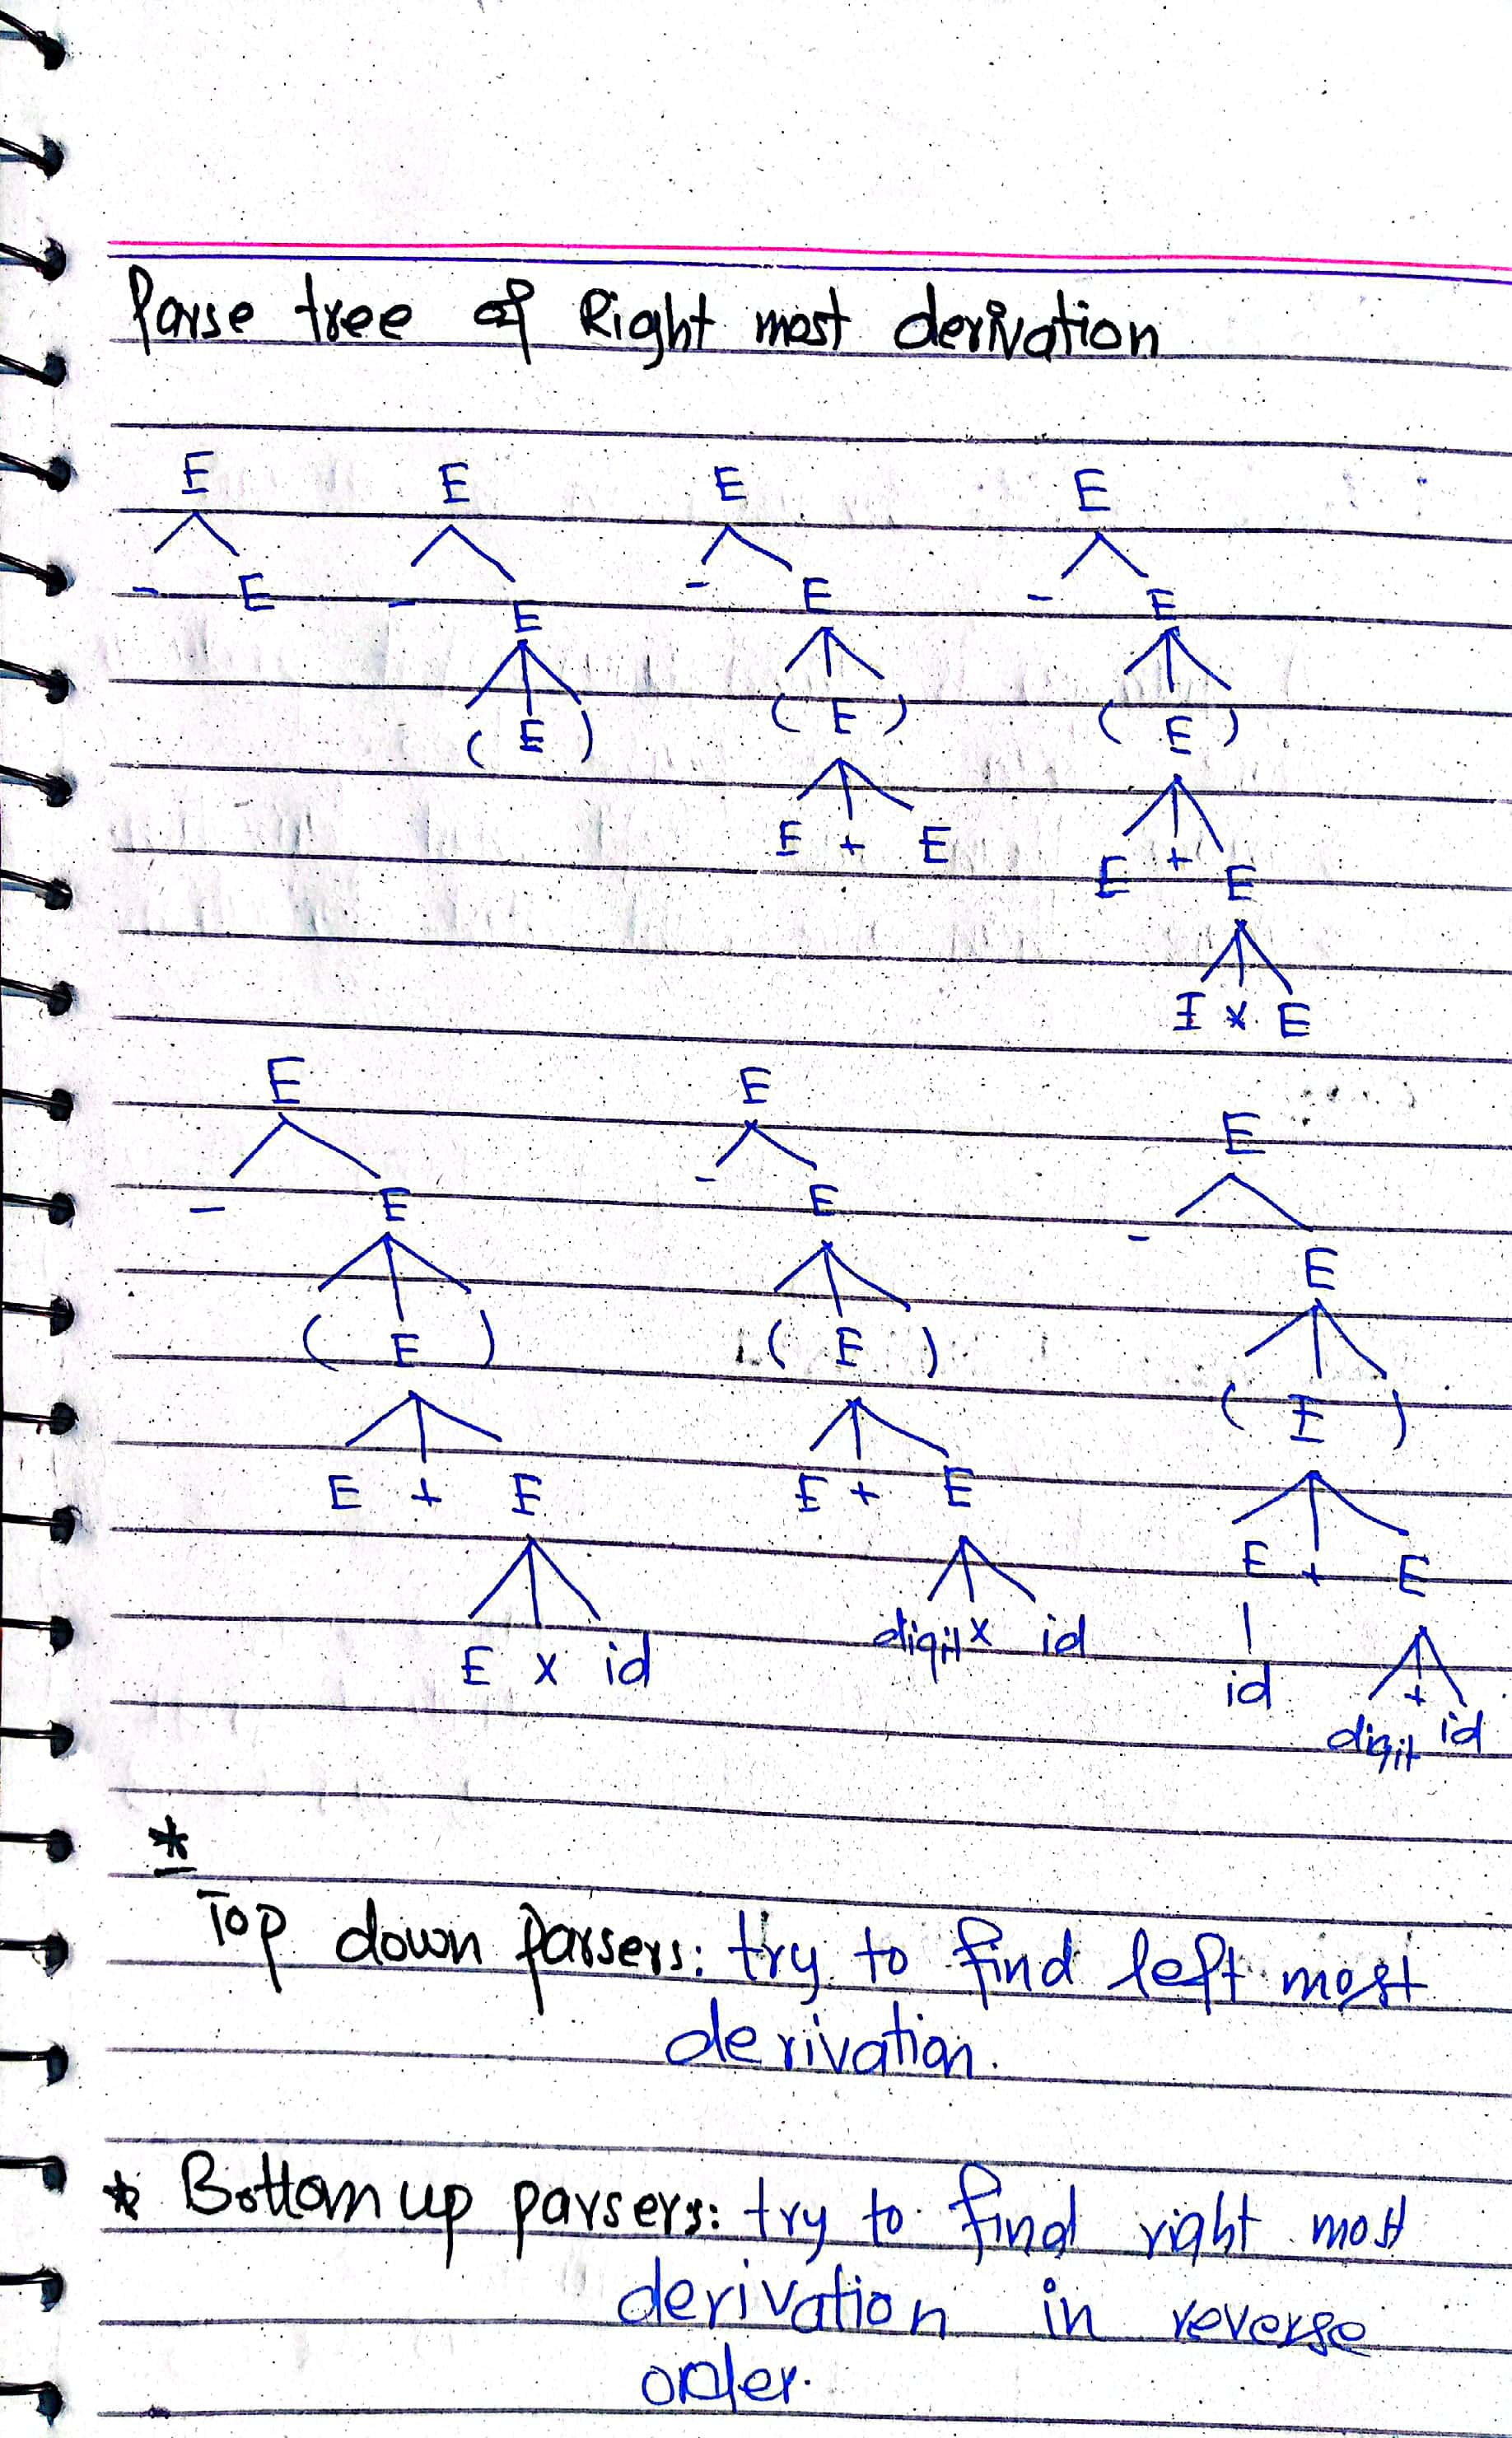 Parse tree of Right most derivation
E E E E
- E - E - E - E
( E ) ( E ) ( E )
E + E E + E
E * E
E E E
- E - E - E
( E ) ( E ) ( E )
E + E E + E E + E
E x id digit x id id digit + id
*
Top down parsers: try to find left most
derivation.
* Bottom up parsers: try to find right most
derivation in reverse
order.